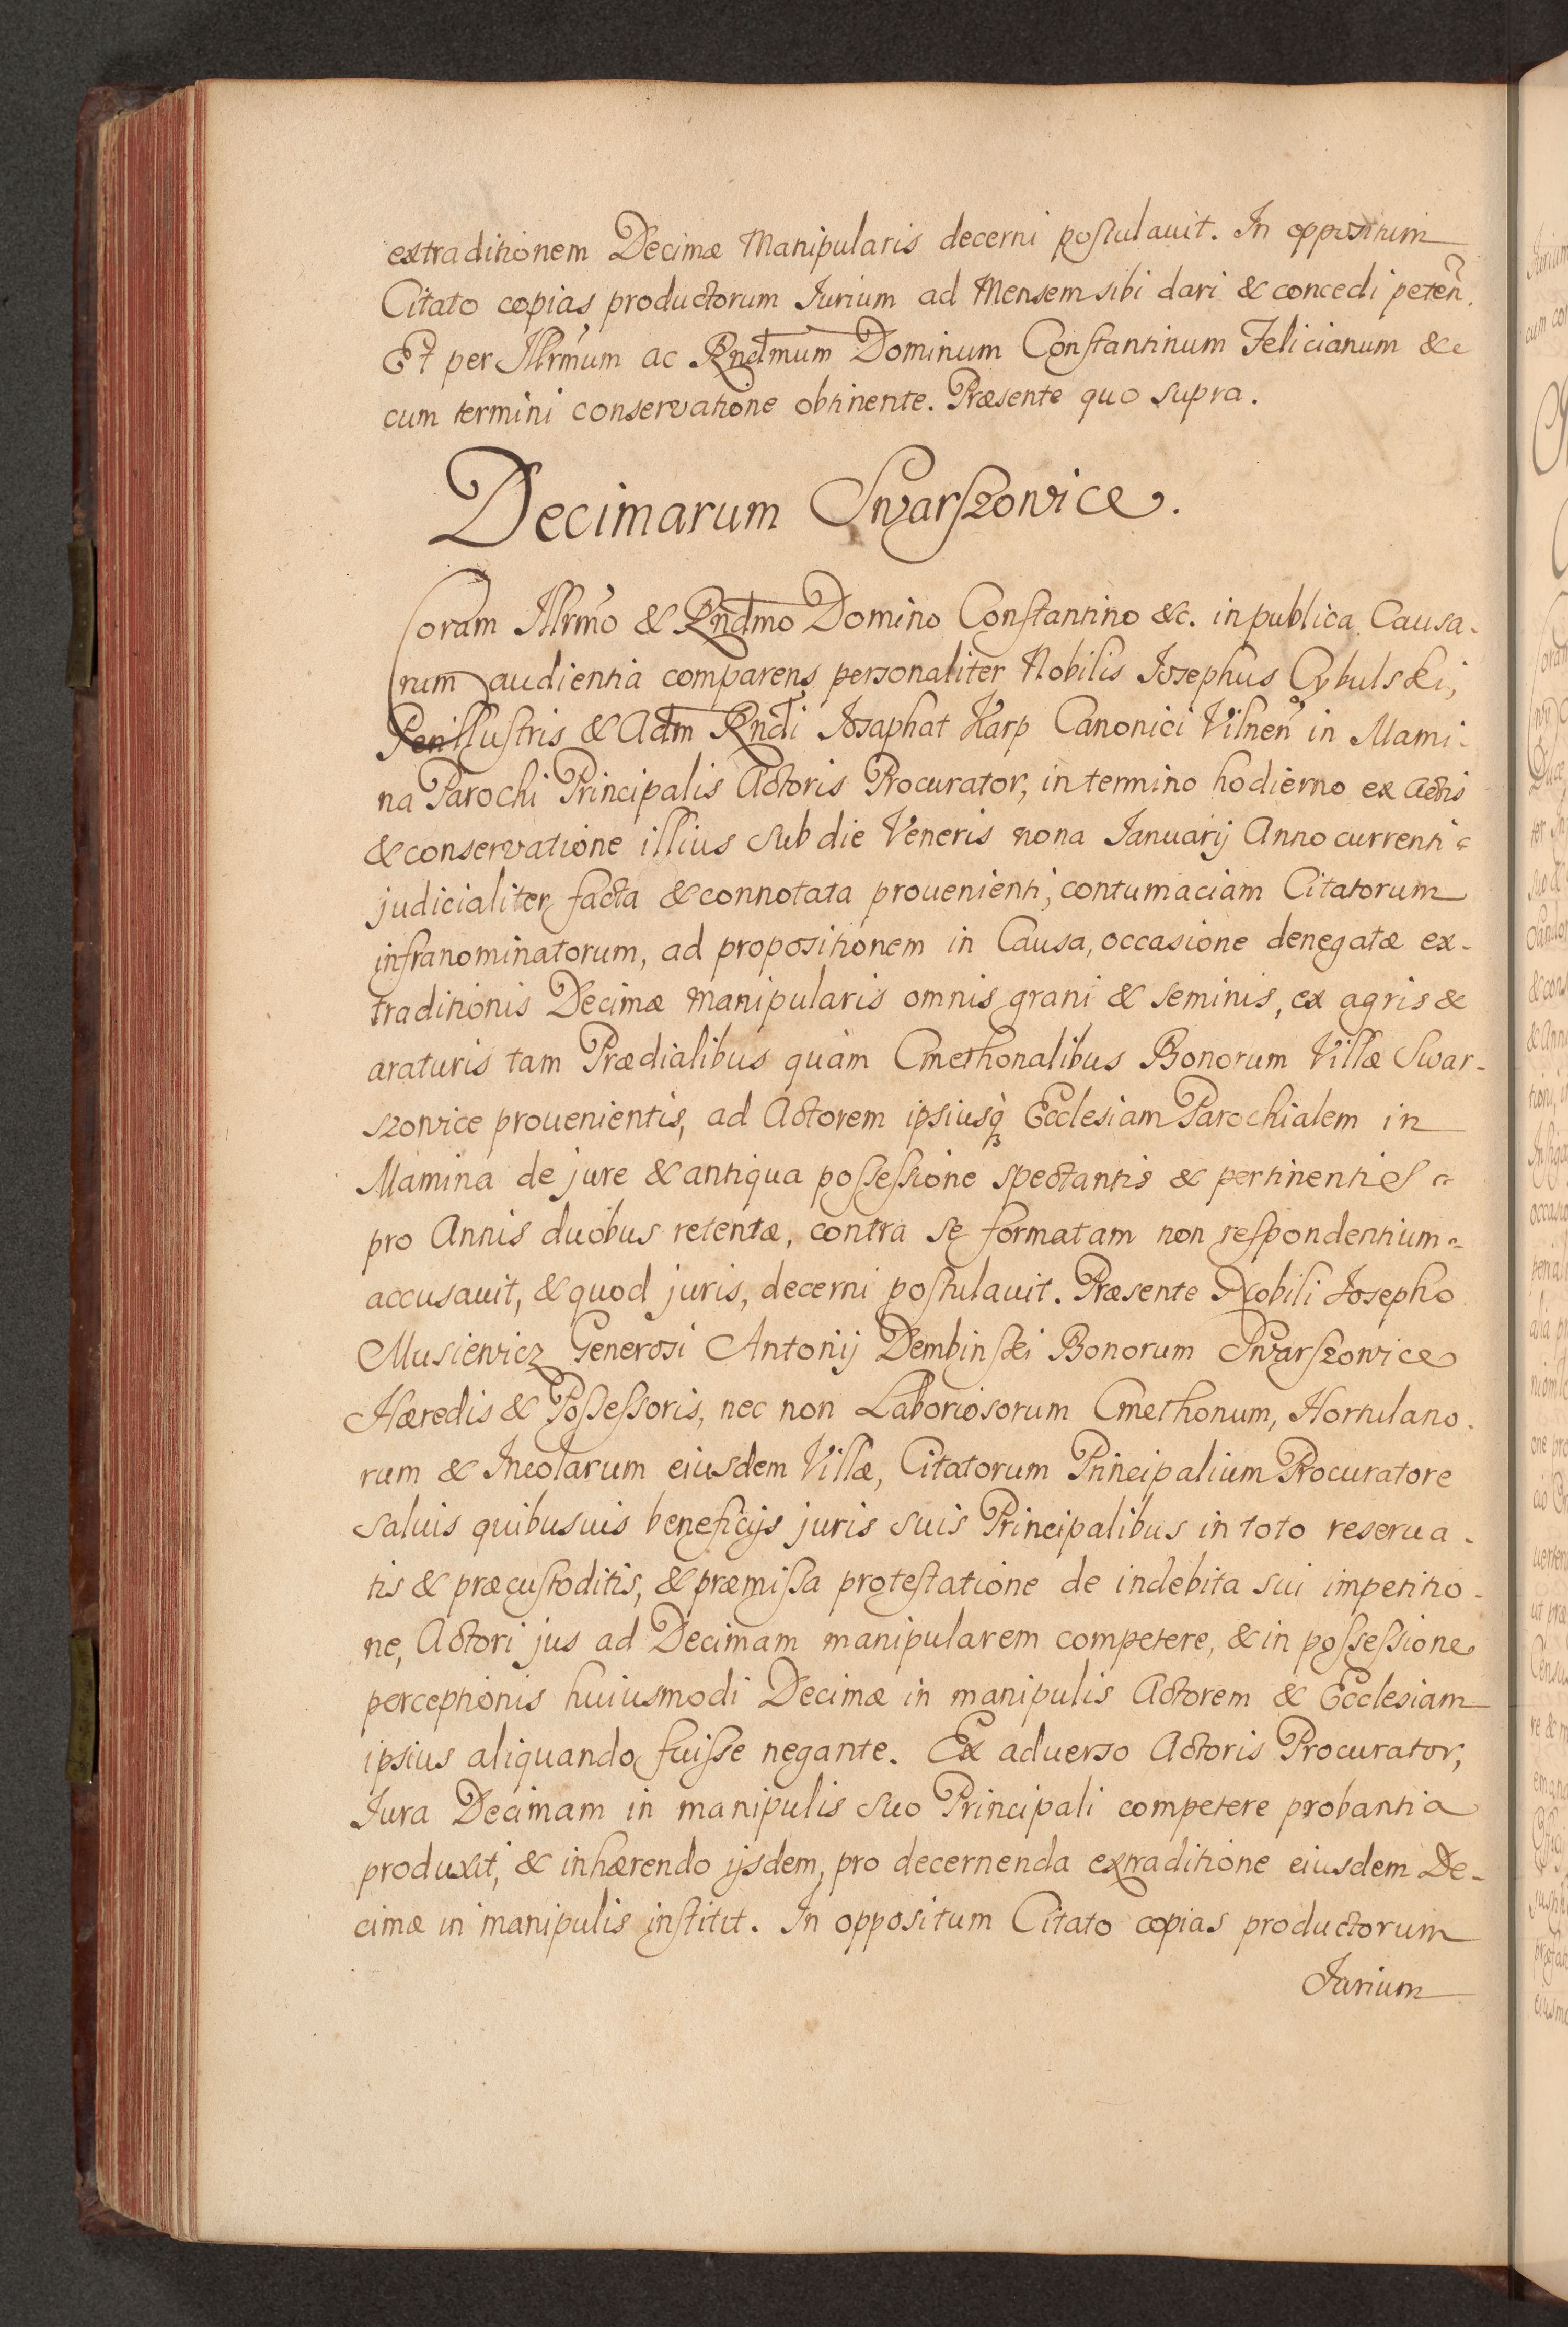 extraditionem Decimæ Manipularis decerni postulauit. In oppositum
Citato copias productorum Iurium ad Mensem sibi dari & concedi peteñ.
Et per Illrmum ac Rndmum Dominum Constantinum Felicianum &c
cum termini conservatione obtinente. Præsente quo supra.
Decimarum Swarszowice.
Coram Illrmo & Rndmo Domino Constantino &c. in publica Causa-
rum audientia comparens personaliter Nobilis Iosephus Cybulski,
Perillustris & Adm Rndi Iosaphat Karp Canonici Vilneñ in Mami-
na Parochi Principalis Actoris Procurator, in termino hodierno ex Actis
& conservatione illius sub die Veneris nona Ianuarij Anno currenti
judicialiter facta & connotata prouenienti, contumaciam Citatorum
infranominatorum, ad propositionem in Causa, occasione denegatæ ex-
traditionis Decimæ manipularis omnis grani & seminis, ex agris &
araturis tam Prædialibus quàm Cmethonalibus Bonorum Villæ Swar-
szowice prouenientis, ad Actorem ipsiusq3 Ecclesiam Parochialem in
Mamina de jure & antiqua possessione spectantis & pertinentis
pro Annis duobus retentæ, contra se formatam non respondentium
accusauit, & quod juris, decerni postulauit. Præsente Nobili Iosepho
Musiewicz Generosi Antonij Dembinski Bonorum Swarszowice
Hæredis & Possessoris, nec non Laboriosorum Cmethonum, Hortulano-
rum & Incolarum eiusdem Villæ, Citatorum Principalium Procuratore
saluis quibusuis beneficijs juris suis Principalibus in toto reserua-
tis & præcustoditis, & præmissa protestatione de indebita sui impetitio-
ne, Actori jus ad Decimam manipularem competere, & in possessione
perceptionis huiusmodi Decimæ in manipulis Actorem & Ecclesiam
ipsius aliquando fuisse negante. Ex aduerso Actoris Procurator,
Iura Decimam in manipulis suo Principali competere probantia
produxit, & inhærendo ijsdem, pro decernenda extraditione eiusdem De-
cimæ in manipulis institit. In oppositum Citato copias productorum
Iurium